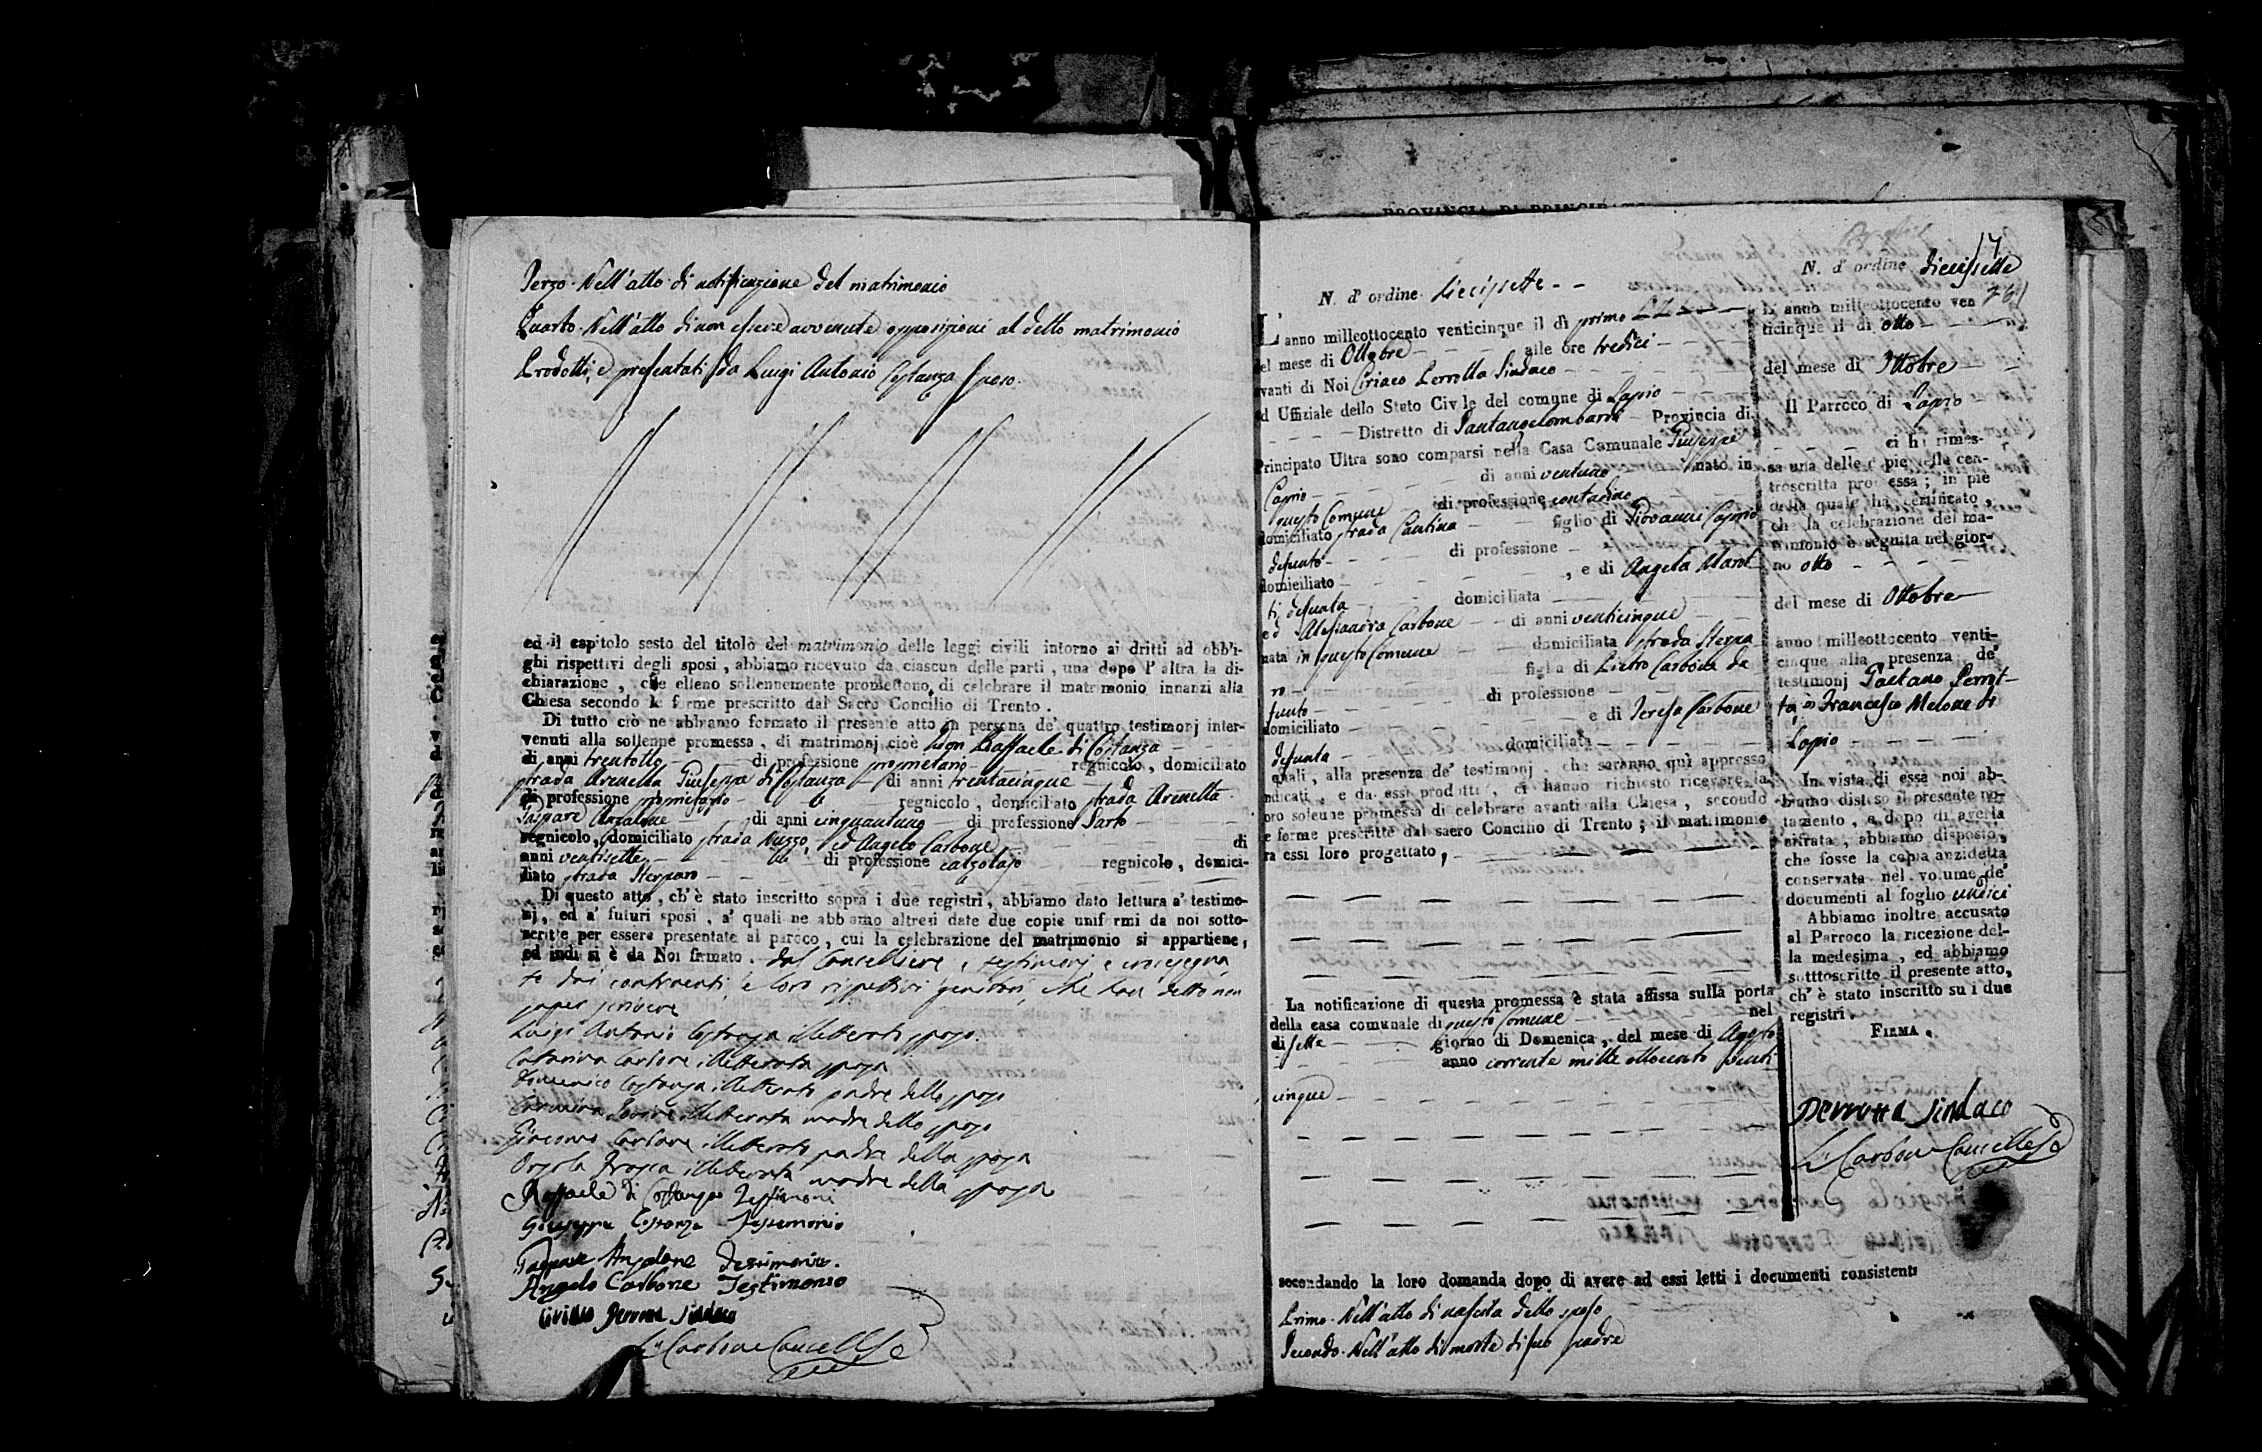 Terzo. Nell'atto di notificazione del matrimonio
Quarto. Nell'atto di non essere avvenute opposizioni al detto matrimonio
Prodotti, e presentati da Luigi Antonio Costanza sposo.
ed il capitolo sesto del titolo del matrimonio delle leggi civili intorno ai dritti ad obbli-
ghi rispettivi degli sposi, abbiamo ricevuto da ciascun delle parti, una dopo l'altra la di-
chiarazione, che elleno sollennemente promettono di celebrare il matrimonio innanzi alla
Chiesa secondo le forme prescritto dal Sacro Concilio di Trento.
Di tutto ciò ne abbiamo formato il presente atto in persona de' quattro testimonj inter-
venuti alla sollenne promessa, di matrimonj cioè Don Raffaele di Costanza
di anni trentotto di professione proprietario regnicolo, domiciliato
strada Arenella Giuseppe di Costanza di anni trentacinque
di professione proprietario regnicolo, domiciliato strada Arenella
Gaspare Anzalone di anni cinquantuno di professione Sarto
regnicolo, domiciliato strada Nuzzo, ed Angelo Carbone di
anni ventisette di professione calzolajo regnicolo, domici-
liato strada Sterparo
Di questo atto, ch'è stato inscritto sopra i due registri, abbiamo dato lettura a' testimo-
nj, ed a' futuri sposi, a' quali ne abbiamo altresì date due copie uniformi da noi sotto-
scritte per essere presentate al paroco, cui la celebrazione del matrimonio si appartiene,
ed indi si è da Noi firmato. dal Cancelliere, testimonj e
dai contraenti, e loro rispettivi genitori, che han detto non
saper scrivere
Luigi Antonio Costanza illetterato sposo.
Catarina Carbone illetterata sposa
Domenico Costanza illetterato padre dello sposo
Carmina illetterata madre dello sposo
Giacomo Carbone illetterato padre della sposa
Orsola illetterata madre della sposa
Raffaele di Costanza Testimonio
Giuseppe Costanza Testimonio
Gaspare Anzalone Testimonio.
Angelo Carbone Testimonio
Ciriaco Perrotta Sindaco
L. Carbone Cancelliere
17
N. d'ordine diecissette
N. d'ordine diecissette
L'anno milleottocento venticinque il dì primo
del mese di Ottobre alle ore tredici
avanti di Noi Ciriaco Perrotta Sindaco
ed Uffiziale dello Stato Civile del comune di Lapio
Distretto di Santangelombardi Provincia di
Principato Ultra sono comparsi nella Casa Comunale Giuseppe
Caprio di anni ventuno nato in
questo Comune di professione contadino
domiciliato strada Cantina figlio di Giovanni Caprio
defunto di professione
domiciliato , e di Angela Marot-
ti defunta domiciliata
ed Alesiandra Carbone di anni venticinque
nata in questo Comune domiciliata strada Sterpa-
ro figlia di Pietro Carbone de-
funto di professione
domiciliato e di Teresa Carbone
defunta domiciliata
quali, alla presenza de' testimonj, che saranno quì appresso
indicati, e da essi prodotti, ci hanno richiesto ricevere la
loro solenne promessa di celebrare avanti alla Chiesa, secondo
le forme prescritte dal sacro Concilio di Trento; il matrimonio
fra essi loro progettato,
La notificazione di questa promessa è stata affissa sulla porta
della casa comunale di questo Comune nel
dì sette giorno di Domenica, del mese di Agosto
anno corrente mille ottocento venti
cinque
secondando la loro domanda dopo di avere ad essi letti i documenti consistenti
Primo. Nell'atto di nascita dello sposo
Secondo. Nell'atto di morte di suo padre
L'anno milleottocento ven
ticinque il dì otto
del mese di Ottobre
Il Parroco di Lapio
ci ha rimes-
sa una delle copie della con-
troscritta promessa; in piè
della quale ha certificato,
che la celebrazione del ma-
trimonio è seguita nel gior-
no otto
del mese di Ottobre
anno milleottocento venti-
cinque alla presenza de'
testimonj Gaetano Perrot-
ta, e Francesco Melone di
Lapio
In vista di essa noi ab-
biamo disteso il presente no-
tamento, e dopo di averla
cifrata, abbiamo disposto,
che fosse la copia anzidetta
conservata nel volume de'
documenti al foglio undici
Abbiamo inoltre accusato
al Parroco la ricezione del-
la medesima, ed abbiamo
sotttoscritto il presente atto,
ch'è stato inscritto su i due
registri.
FIRMA.
Perrotta Sindaco
L. Carbone Cancelliere